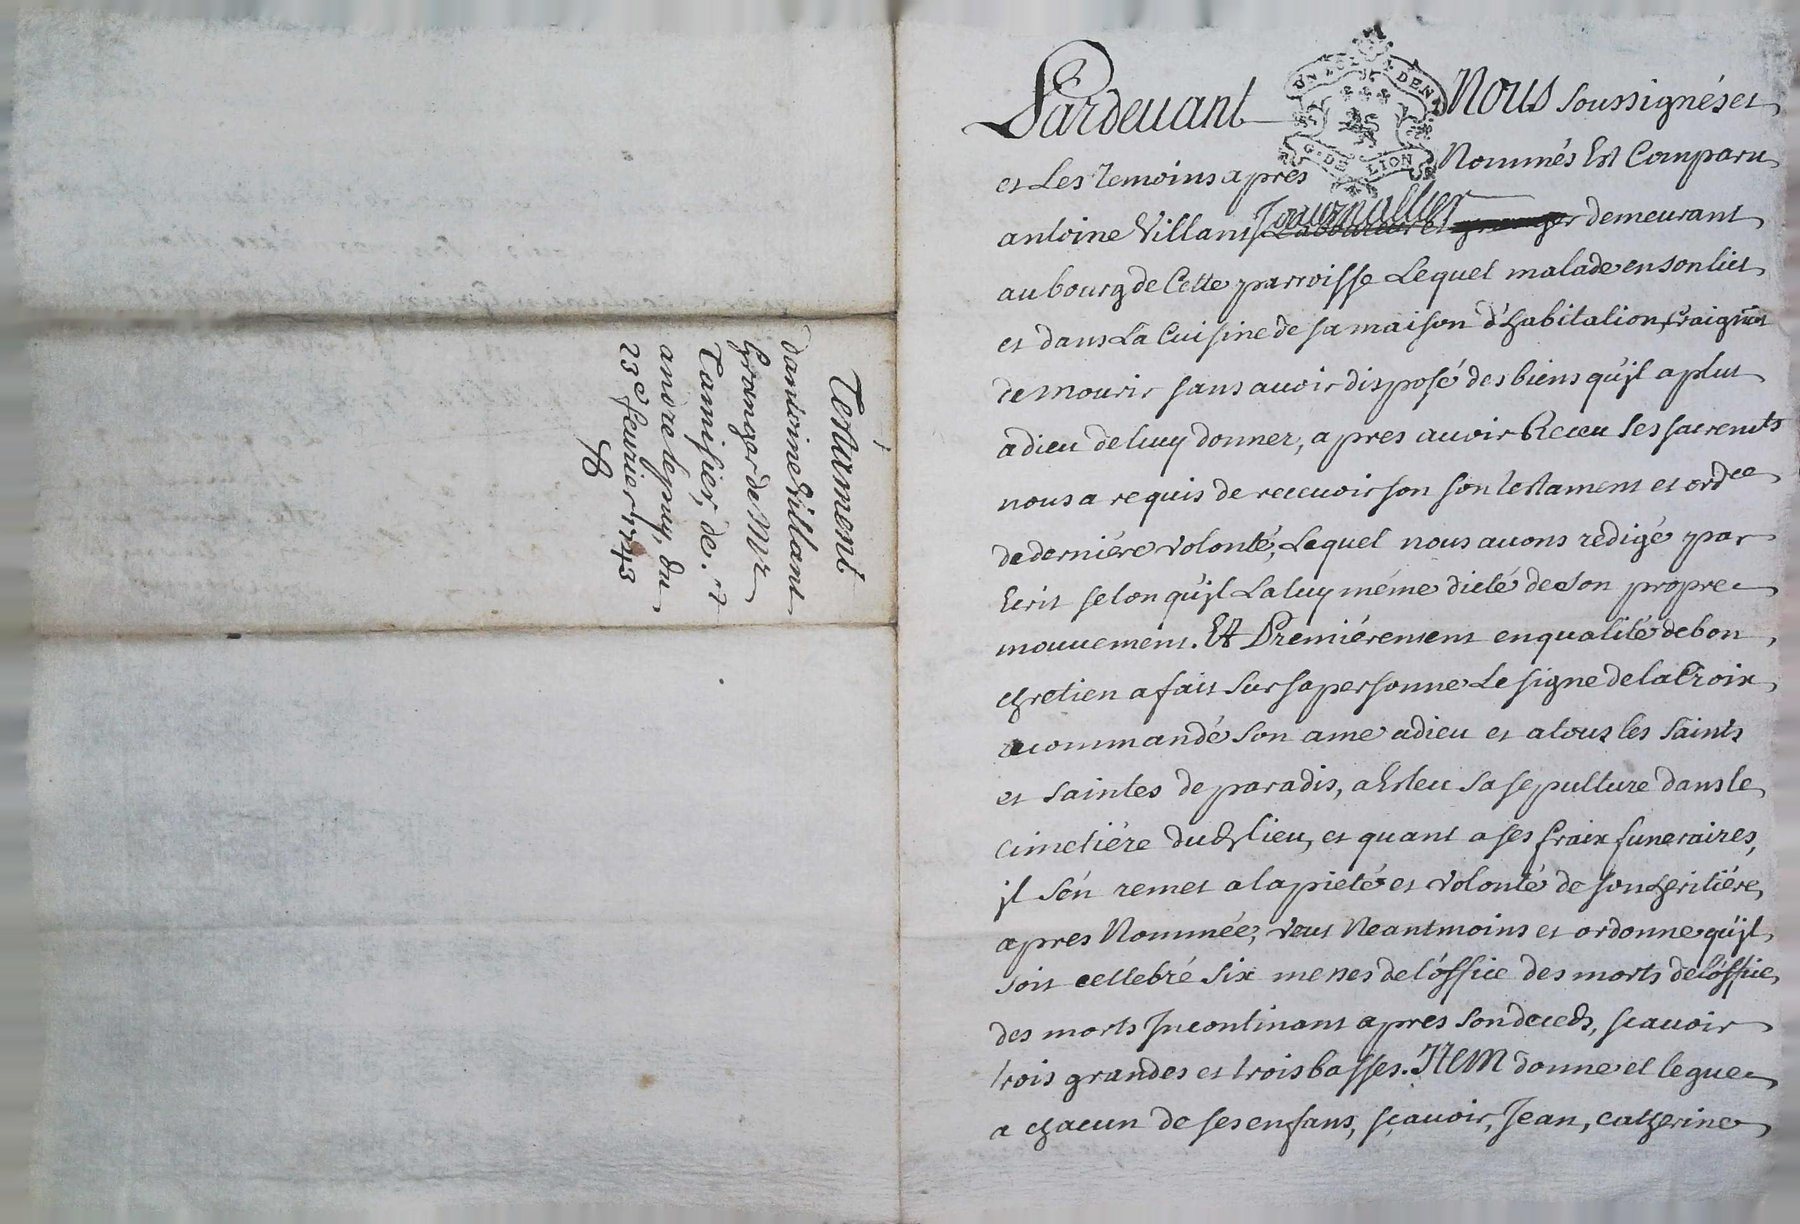 Testament
d'antoine Villant
Granger de Mr
Tamisier, de. st
andré le puy, du
23e feurier 1743
Pardeuant Nous soussignés et
et Les Temoins apres Nommés Est Comparu
antoine Villant Journallier demeurant
au bourg de Cette parroisse Lequel malade en son lict
et dans La Cuisine de sa maison d'habitation, Craignant
de mourir sans auoir disposé des biens qu'jl a plut
a dieu de luy donner, apres auoir Receu Ses sacremts
nous a requis de receuoir son son testament et ordce
de derniére volonté, Lequel nous auons rédigé par
Ecrit selon qu'jl La luy méme dicté de son propre
mouuement. Et Premiérement en qualité de bon
chretien a fait Sur sa personne Le signe de la Croix
recommandé Son ame a dieu et a tous les Saints
et Saintes de paradis, a Esleu Sa sepulture dans le
cimetiére dud. lieu, et quant a ses fraix funeraires,
jl S'én remet a la pieté et volonté de son heritiére,
apres Nommée; Veut Neantmoins et ordonne qu'jl
Soit cellebré Six messes de l'óffice des morts de l'óffice
des morts Jncontinant apres Son deceds, scauoir
trois grandes et trois basses. JTEM donne et legue
a chacun de ses enfans, sçauoir, Jean, Catherine
UN SOL 4 DEN
G. DE LION